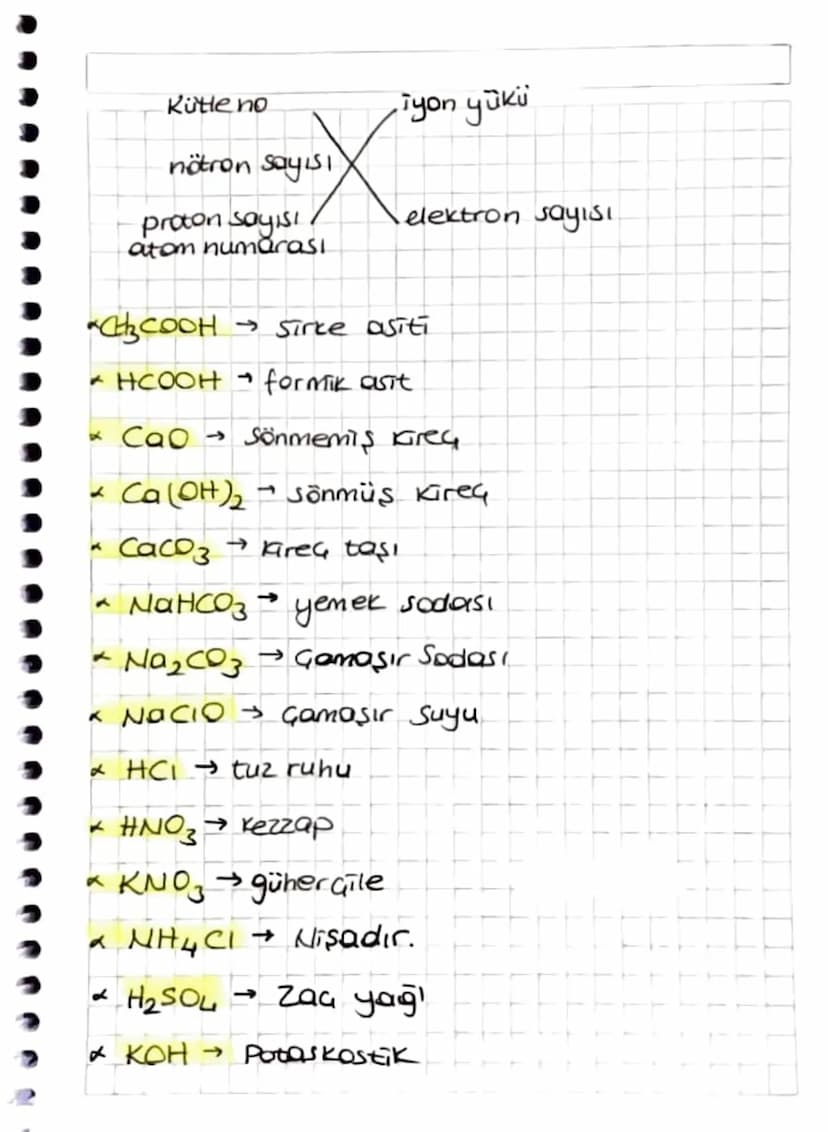 Kütle no iyon yükü
nötron sayısı
proton sayısı elektron sayısı
atom numarası
CH3COOH → sirke asiti
HCOOH → formik asit
CaO → sönmemiş kireç
Ca(OH)2 → sönmüş kireç
CaCO3 → kireç taşı
NaHCO3 → yemek sodası
Na2CO3 → Çamaşır Sodası
NaClO → Çamaşır suyu
HCl → tuz ruhu
HNO3 → kezzap
KNO3 → güherçile
NH4Cl → Nişadır.
H2SO4 → Zaç yağı
KOH → Potaskostik